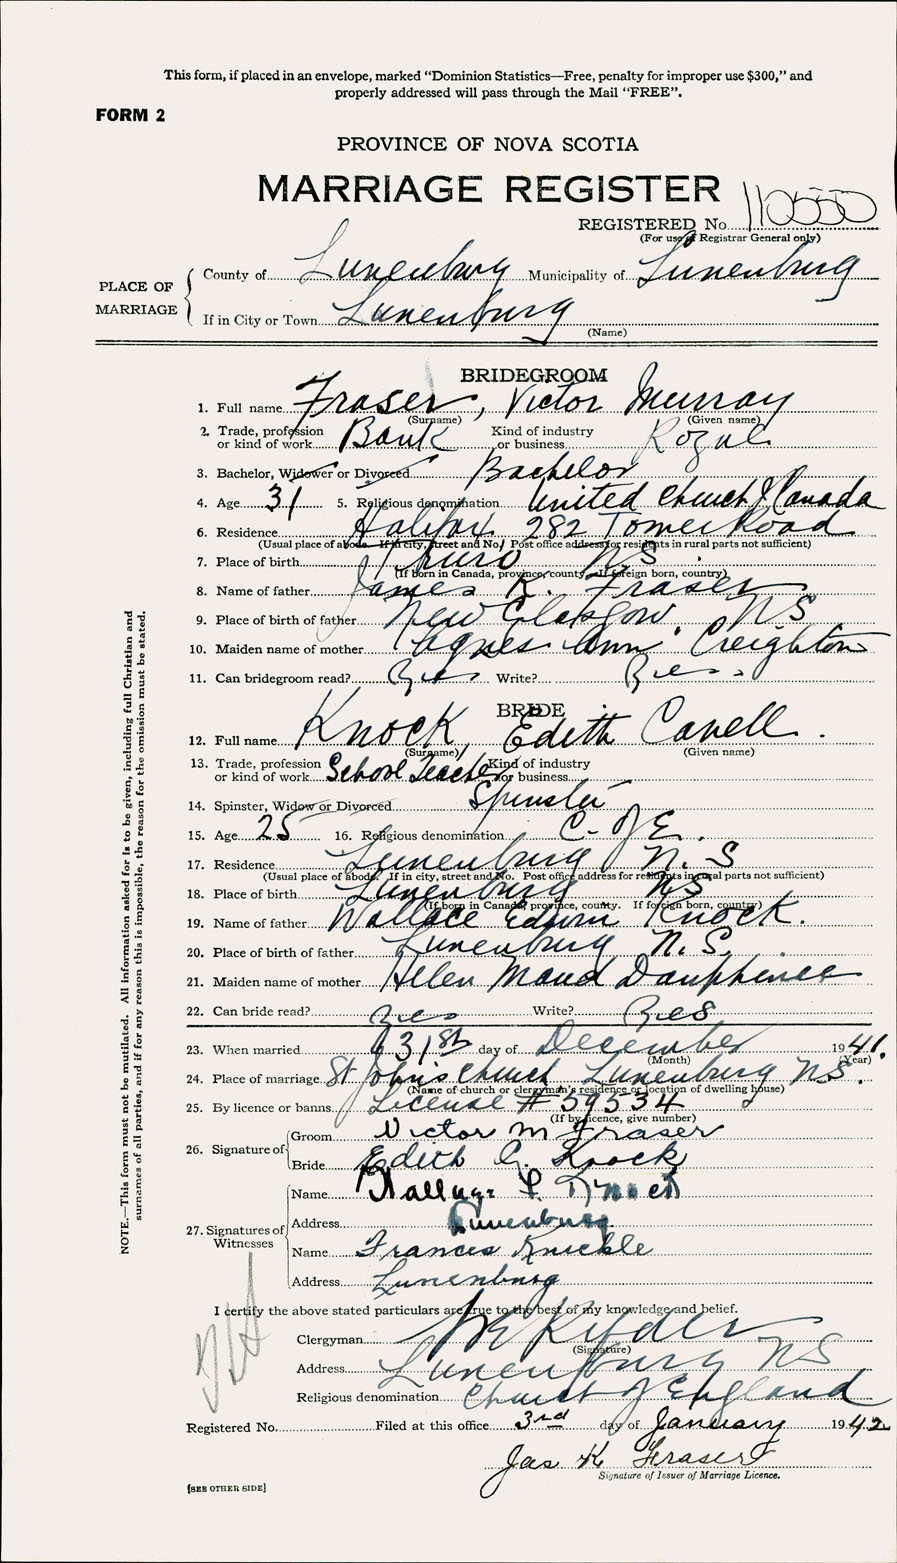 This form, if placed in an envelope, marked “Dominion Statistics—Free, penalty for improper use $300,” and
properly addressed will pass through the Mail “FREE”.
FORM 2
PROVINCE OF NOVA SCOTIA
MARRIAGE REGISTER
REGISTERED No 110550
(For use of Registrar General only)
PLACE OF MARRIAGE
County of Lunenburg Municipality of Lunenburg
If in City or Town Lunenburg
(Name)
BRIDEGROOM
1. Full name Fraser, Victor Murray
(Surname) (Given name)
2. Trade, profession or kind of work Bank Kind of industry or business Royal
3. Bachelor, Widower or Divorced Bachelor
4. Age 31 5. Religious denomination United Church of Canada
6. Residence Halifax 282 Tower Road
(Usual place of abode. If in city, street and No. Post office address for residents in rural parts not sufficient)
7. Place of birth Truro NS
(If born in Canada, province, county. If foreign born, country)
8. Name of father James K. Fraser
9. Place of birth of father New Glasgow, NS
10. Maiden name of mother Agnes Ann Creighton
11. Can bridegroom read? Yes Write? Yes
BRIDE
12. Full name Knock, Edith Cavell.
(Surname) (Given name)
13. Trade, profession or kind of work School Teacher Kind of industry or business
14. Spinster, Widow or Divorced Spinster
15. Age 25 16. Religious denomination C. of E.
17. Residence Lunenburg N.S
(Usual place of abode. If in city, street and No. Post office address for residents in rural parts not sufficient)
18. Place of birth Lunenburg NS
(If born in Canada, province, county. If foreign born, country)
19. Name of father Wallace Edwin Knock.
20. Place of birth of father Lunenburg N.S.
21. Maiden name of mother Hellen Maud Dauphinee
22. Can bride read? Yes Write? Yes
23. When married 31st day of December 1941.
(Month) (Year)
24. Place of marriage St John's Church Lunenburg N.S.
(Name of church or clergyman's residence or location of dwelling house)
25. By licence or banns License # 59534
(If by licence, give number)
26. Signature of
Groom Victor M Fraser
Bride Edith C. Knock
27. Signatures of Witnesses
Name Knock
Address Lunenburg
Name Frances Knickle
Address Lunenburg
I certify the above stated particulars are true to the best of my knowledge and belief.
Clergyman
(Signature)
Address Lunenburg NS
Religious denomination Church of England
Registered No. Filed at this office 3rd day of January 1942
Jas K Fraser
Signature of Issuer of Marriage Licence.
[SEE OTHER SIDE]
NOTE.—This form must not be mutilated. All information asked for is to be given, including full Christian and
surnames of all parties, and if for any reason this is impossible, the reason for the omission must be stated.